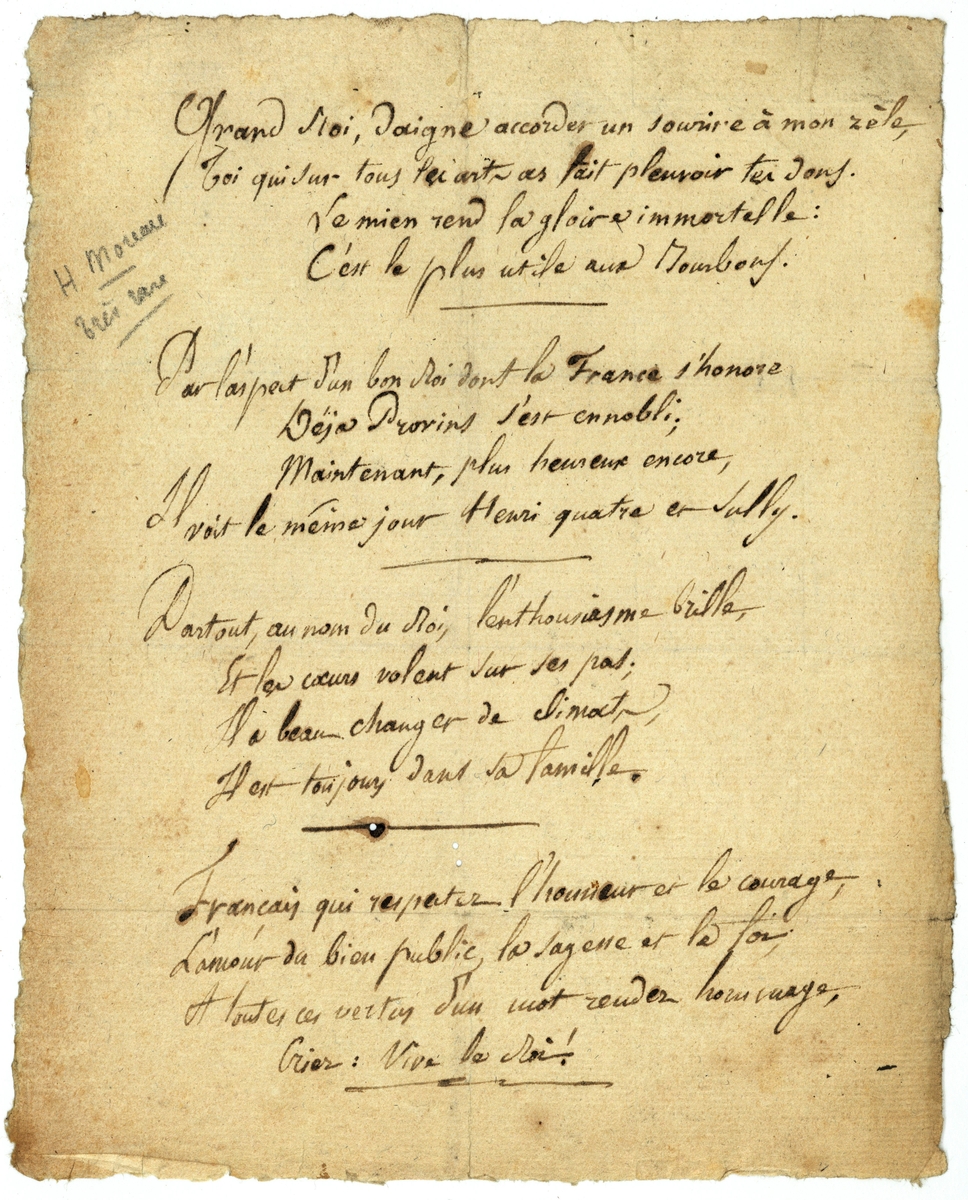 Grand Roi, daigne accorder un sourire à mon zèle,
Toi qui sur tous les arts as fait pleuvoir tes dons.
Le mien rend la gloire immortelle :
C'est le plus utile aux Bourbons.
H Moreau
très rare
Par l'aspect d'un bon Roi dont la France s'honore
Déja Provins s'est ennobli ;
Maintenant, plus heureux encore,
Il voit le même jour Henri quatre et Sully.
Partout, au nom du Roi, l'enthousiasme brille,
Et les cœurs volent sur ses pas ;
Il a beau changer de climats,
Il est toujours dans sa famille.
Français qui respectez l'honneur et le courage,
L'amour du bien public, la sagesse et la foi ;
A toutes ces vertus d'un mot rendez hommage,
Criez : Vive le Roi !